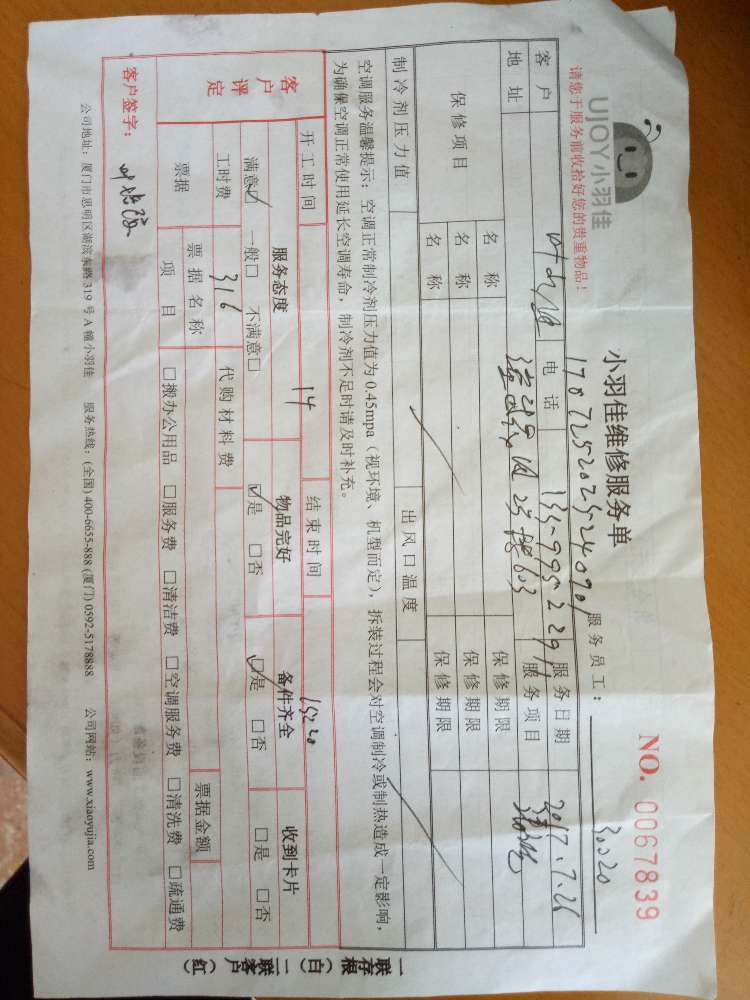 UJOY小羽佳
请您于服务前收拾好您的贵重物品!
小羽佳维修服务单
NO. 0067839
服务员工: 30220
客户 电话 服务日期 2017.7.26
地址 服务项目
保修项目 名称 保修期限
名称 保修期限
名称 保修期限
制冷剂压力值 出风口温度
空调服务温馨提示:空调正常制冷剂压力值为0.45mpa(视环境、机型而定),拆装过程会对空调制冷或制热造成一定影响,
为确保空调正常使用延长空调寿命,制冷剂不足时请及时补充。
开工时间 14 结束时间 15:20
客户评定 服务态度 物品完好 备件齐全 收到卡片
满意☑ 一般□ 不满意□ ☑是 □否 ☑是 □否 □是 □否
工时费 316 代购材料费
票据 票据名称 票据金额
项目 □搬办公用品 □服务费 □清洁费 □空调服务费 □清洗费 □疏通费
客户签字:
公司地址:厦门市思明区湖滨东路319号A幢小羽佳 服务热线:(全国)400-6655-888 (厦门)0592-5178888 公司网站:www.xiaoyujia.com
一联存根(白) 二联客户(红)